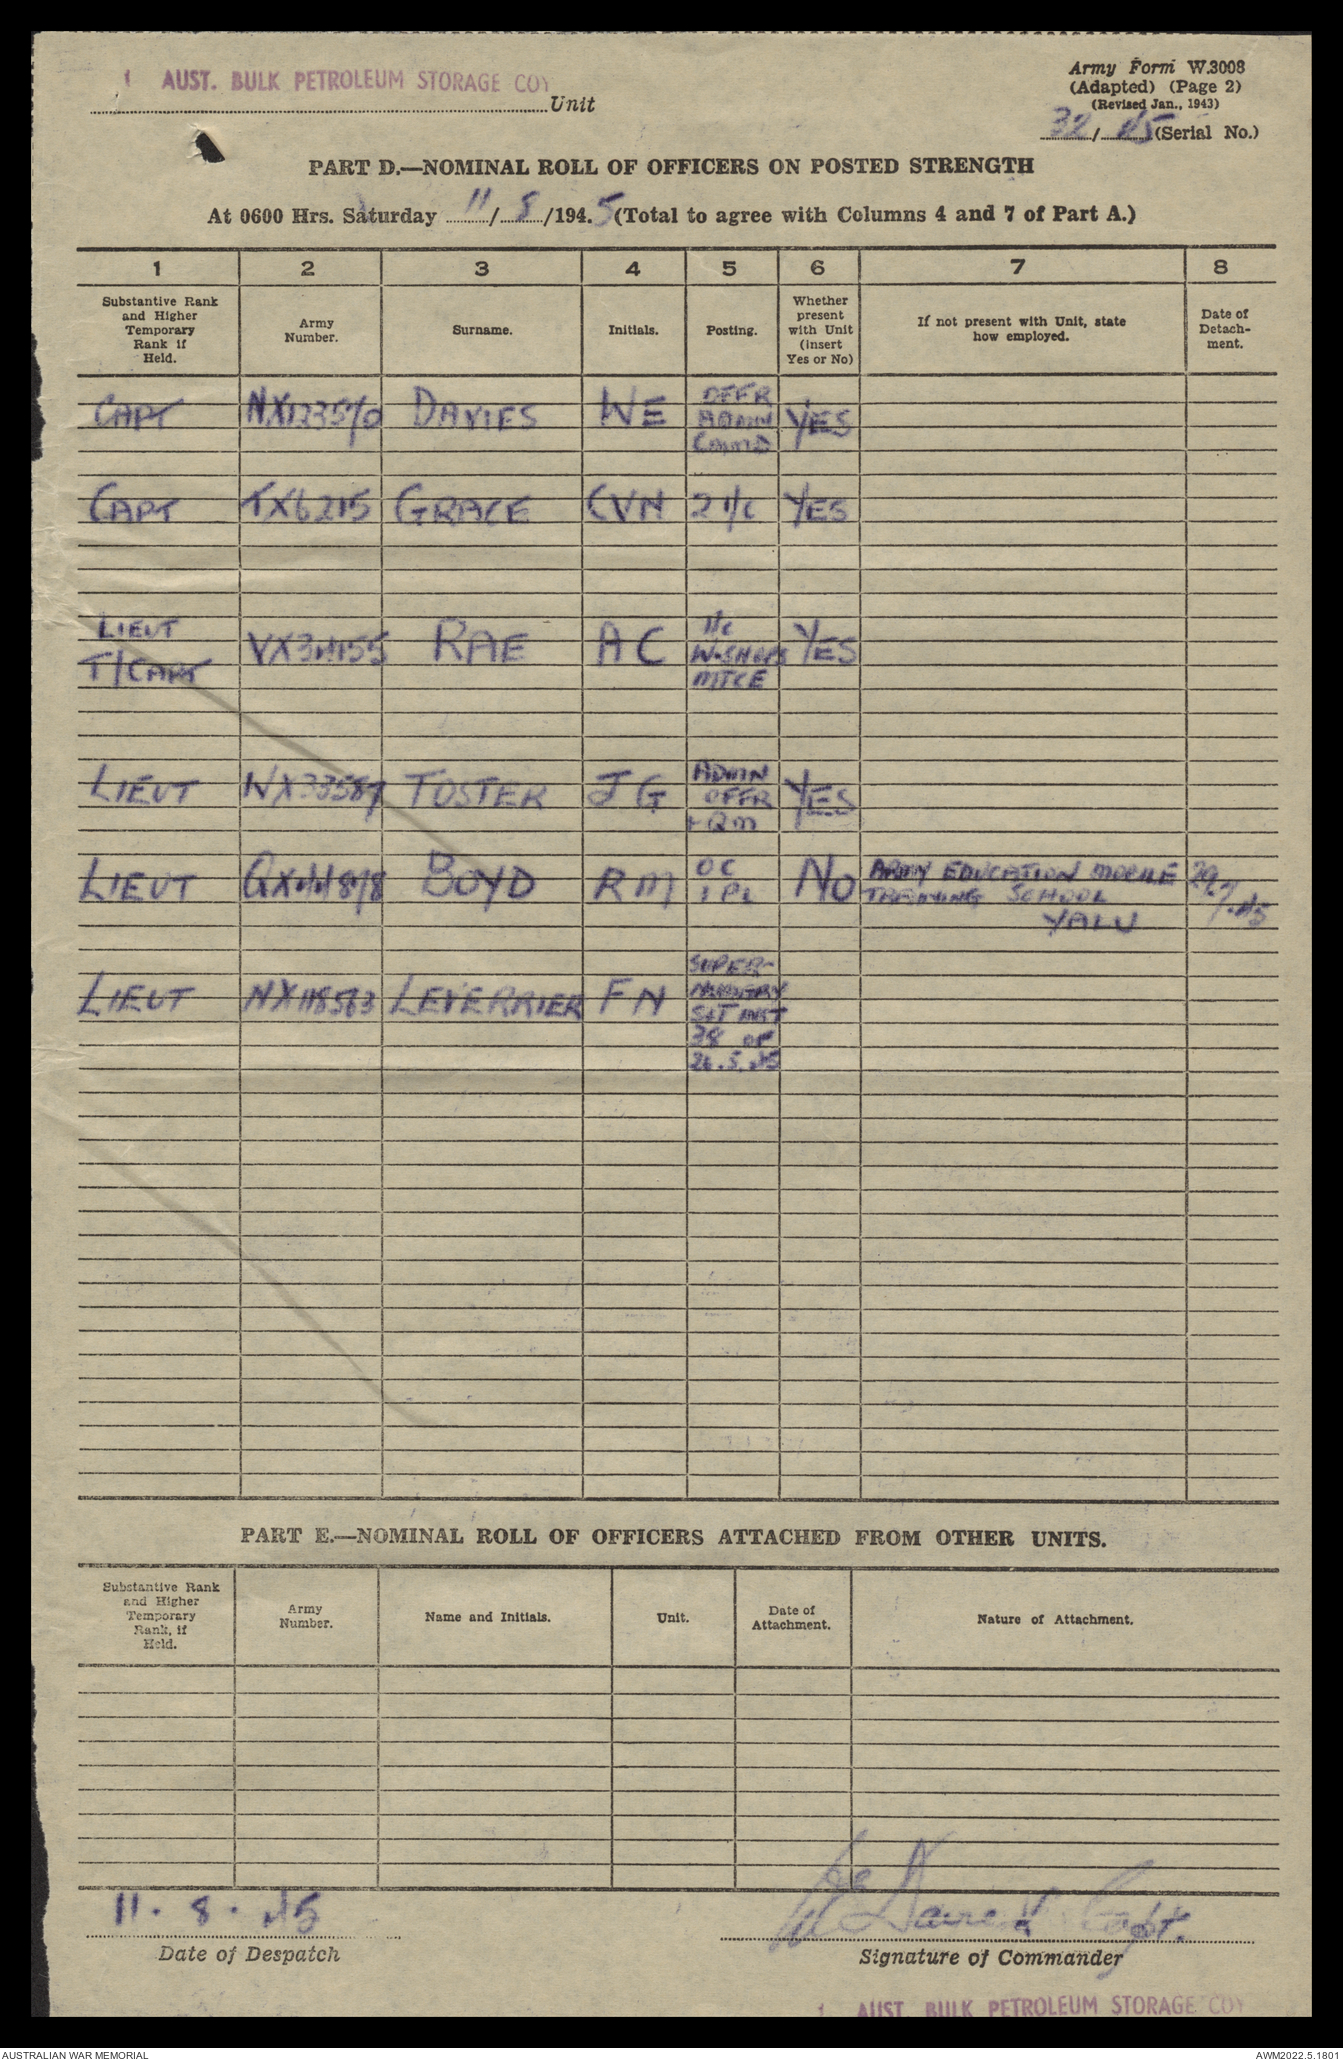 1 AUST. BULK PETROLEUM STORAGE COY
Unit
Army Form W.3008
(Adapted) (Page 2)
(Revised Jan., 1943)
32/45 (Serial No.)
PART D.—NOMINAL ROLL OF OFFICERS ON POSTED STRENGTH
At 0600 Hrs. Saturday 11/8/1945 (Total to agree with Columns 4 and 7 of Part A.)
1 2 3 4 5 6 7 8
Substantive Rank
and Higher
Temporary
Rank if
Held.
Army
Number.
Surname.
Initials.
Posting.
Whether
present
with Unit
(insert
Yes or No)
If not present with Unit, state
how employed.
Date of
Detach-
ment.
CAPT NX123570 DAVIES WE OFFR
ADMIN
COMMD YES
CAPT TX6215 GRACE CVN 2 I/C YES
LIEUT
T/CAPT VX34155 RAE A C I/C
W-SHOPS
MTCE YES
LIEUT NX33587 TOSTER J G ADMIN
OFFR
+ QM YES
LIEUT QX44878 BOYD R M OC
1 PL NO ARMY EDUCATION MOBILE
TRAINING SCHOOL
YALU 29.7
.45
LIEUT NX118563 LEVERRIER F N SUPER-
NUMERY
38 OF
26.5.45
PART E.—NOMINAL ROLL OF OFFICERS ATTACHED FROM OTHER UNITS.
Substantive Rank
and Higher
Temporary
Rank, if
Held.
Army
Number.
Name and Initials.
Unit.
Date of
Attachment.
Nature of Attachment.
11.8.45
Date of Despatch
WE Davies Capt.
Signature of Commander
1 AUST. BULK PETROLEUM STORAGE COY
AUSTRALIAN WAR MEMORIAL
AWM2022.5.1801